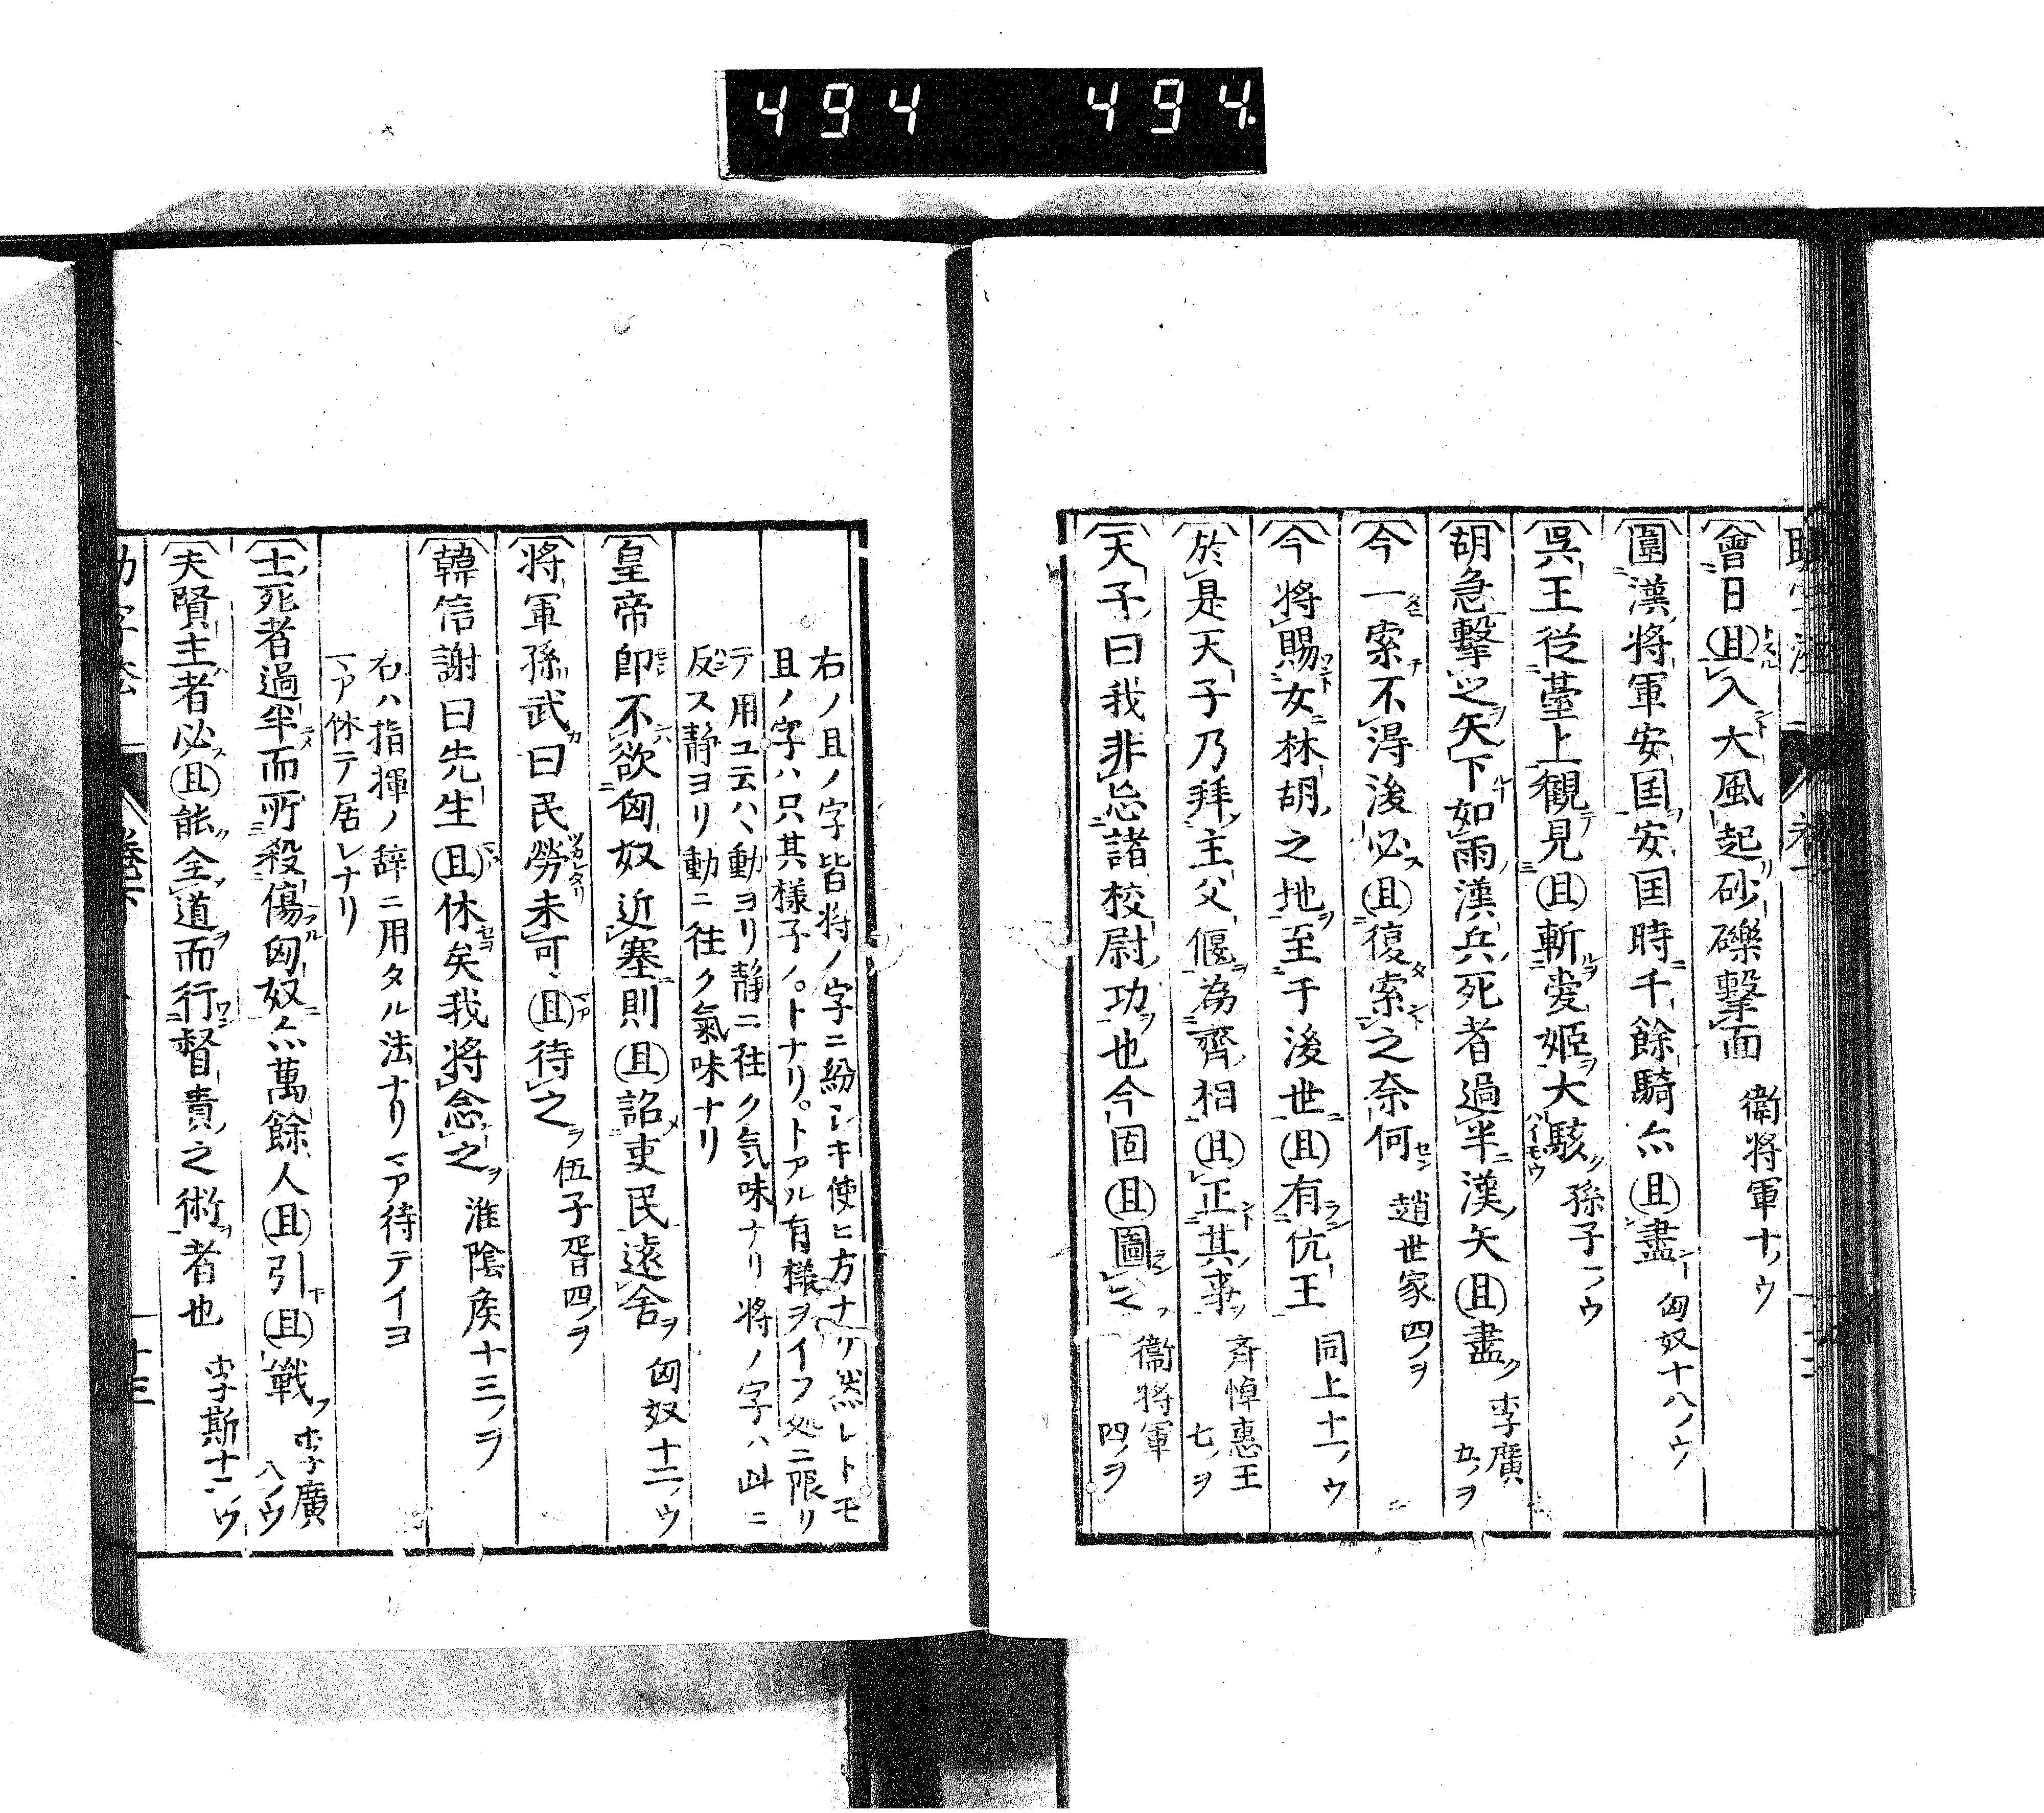 494 494
會日且入大風起砂礫擊面 衞將軍十ノウ
圍漢將軍安国安国時千餘騎亦且盡 匈奴十八ノウ
吳王從臺上觀見且斬愛姬大駭 孫子一ノウ
胡急擊之矢下如雨漢兵死者過半漢矢且盡 李廣五ノヲ
今一索不得後必且復索之奈何 趙世家四ノヲ
今將賜女林胡之地至于後世且有伉王 同上十一ノウ
於是天子乃拜主父偃為齊相且正其事 斉悼惠王七ノヲ
天子曰我非忘諸校尉功也今固且圖之 衞將軍四ノヲ
右ノ且ノ字皆將ノ字ニ紛レキ使ヒ方ナリ然レトモ
且ノ字ハ只其様子ノ。トナリ。トアル有様ヲイフ処ニ限リ
テ用ユ云ハヽ動ヨリ静ニ往ク気味ナリ將ノ字ハ此ニ
反ス静ヨリ動ニ往ク氣味ナリ
皇帝即不欲匈奴近塞則且詔吏民遠舍 匈奴十二ノウ
將軍孫武曰民勞未可且待之 伍子胥四ノヲ
韓信謝曰先生且休矣我將念之 淮陰侯十三ノヲ
右ハ指揮ノ辞ニ用タル法ナリマア待テイヨ
マア休テ居レナリ
士死者過半而所殺傷匈奴亦萬餘人且引且戰 李廣八ノウ
夫賢主者必且能全道而行督責之術者也 李斯十二ノウ